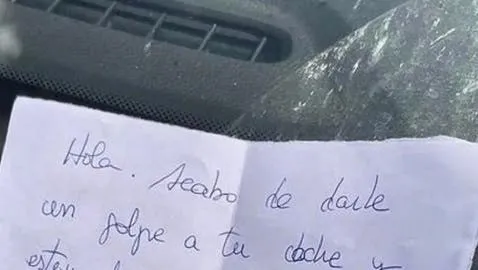 Hola. Acabo de darle
un golpe a tu coche y